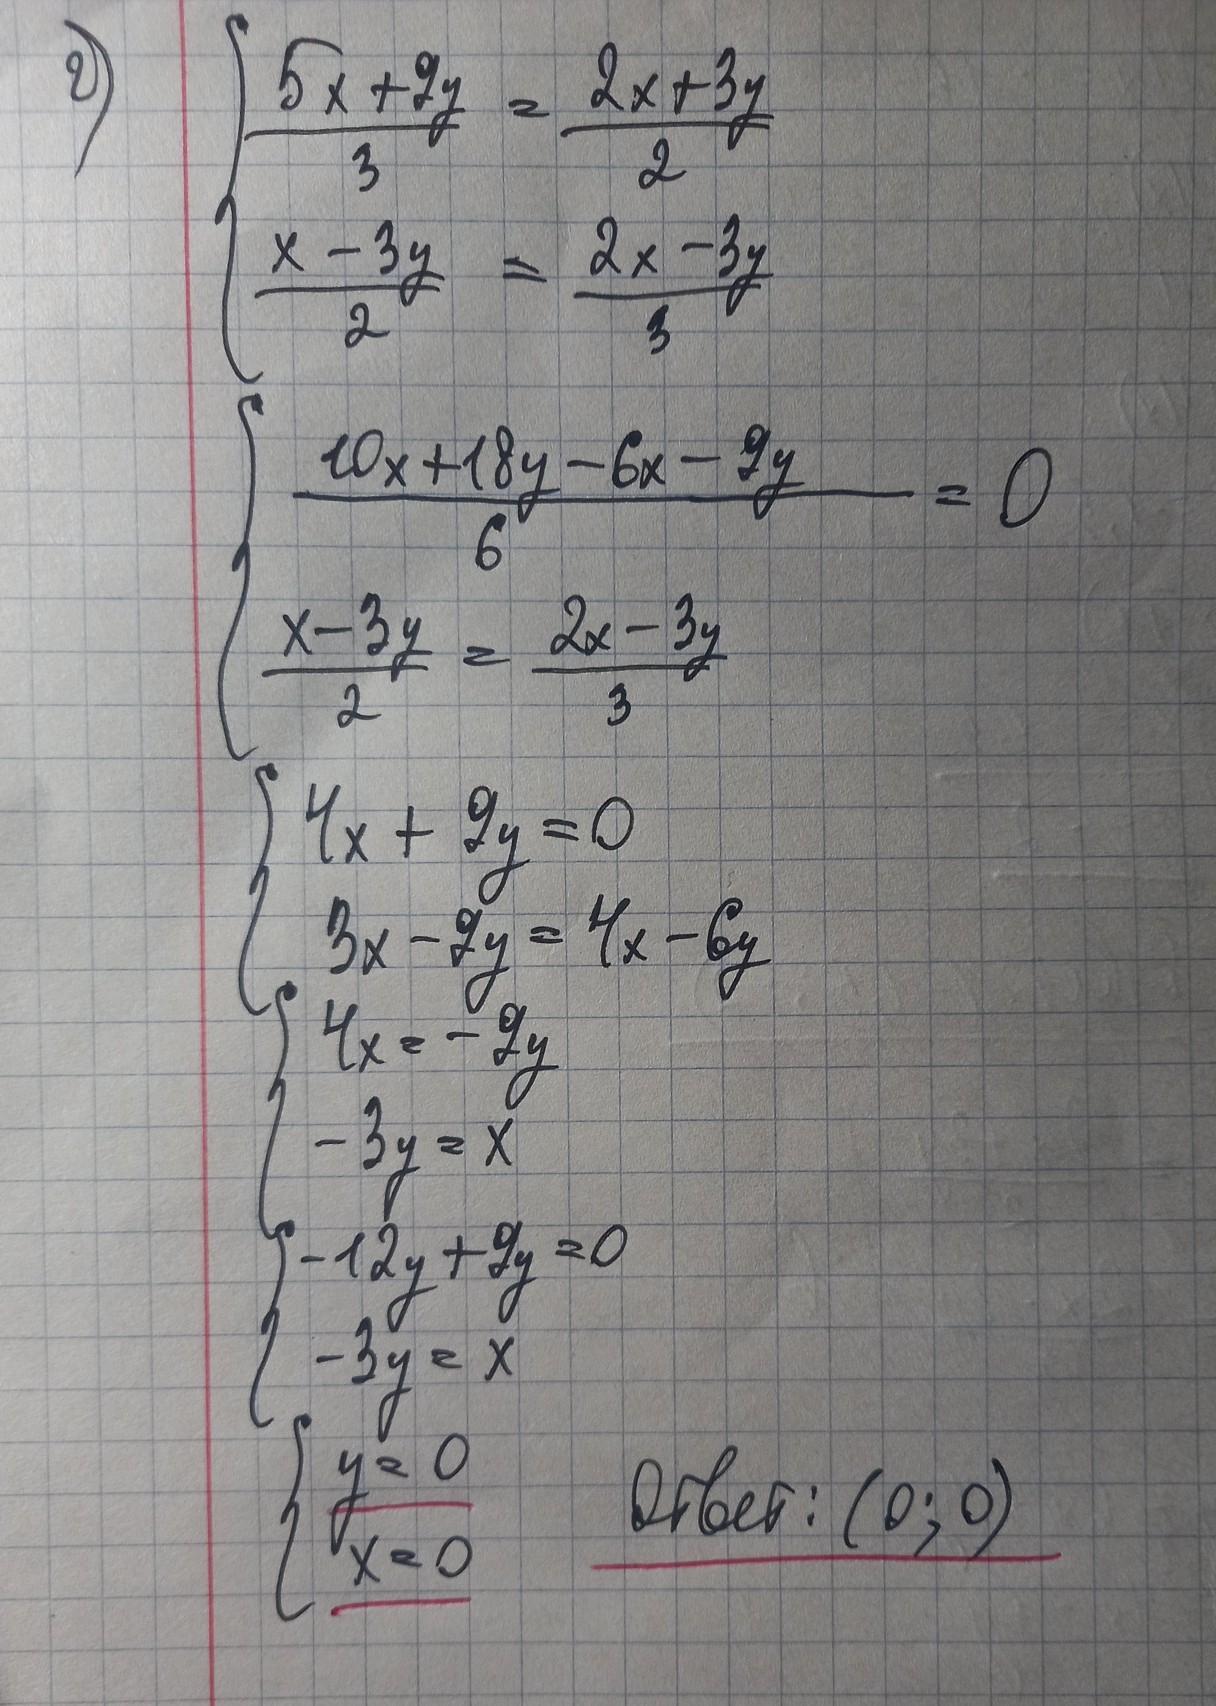 г)
(5x+9y)/3 = (2x+3y)/2
(x-3y)/2 = (2x-3y)/3
(10x+18y-6x-9y)/6 = 0
(x-3y)/2 = (2x-3y)/3
4x+9y=0
3x-9y=4x-6y
4x=-9y
-3y=x
-12y+9y=0
-3y=x
y=0
x=0
Ответ: (0; 0)